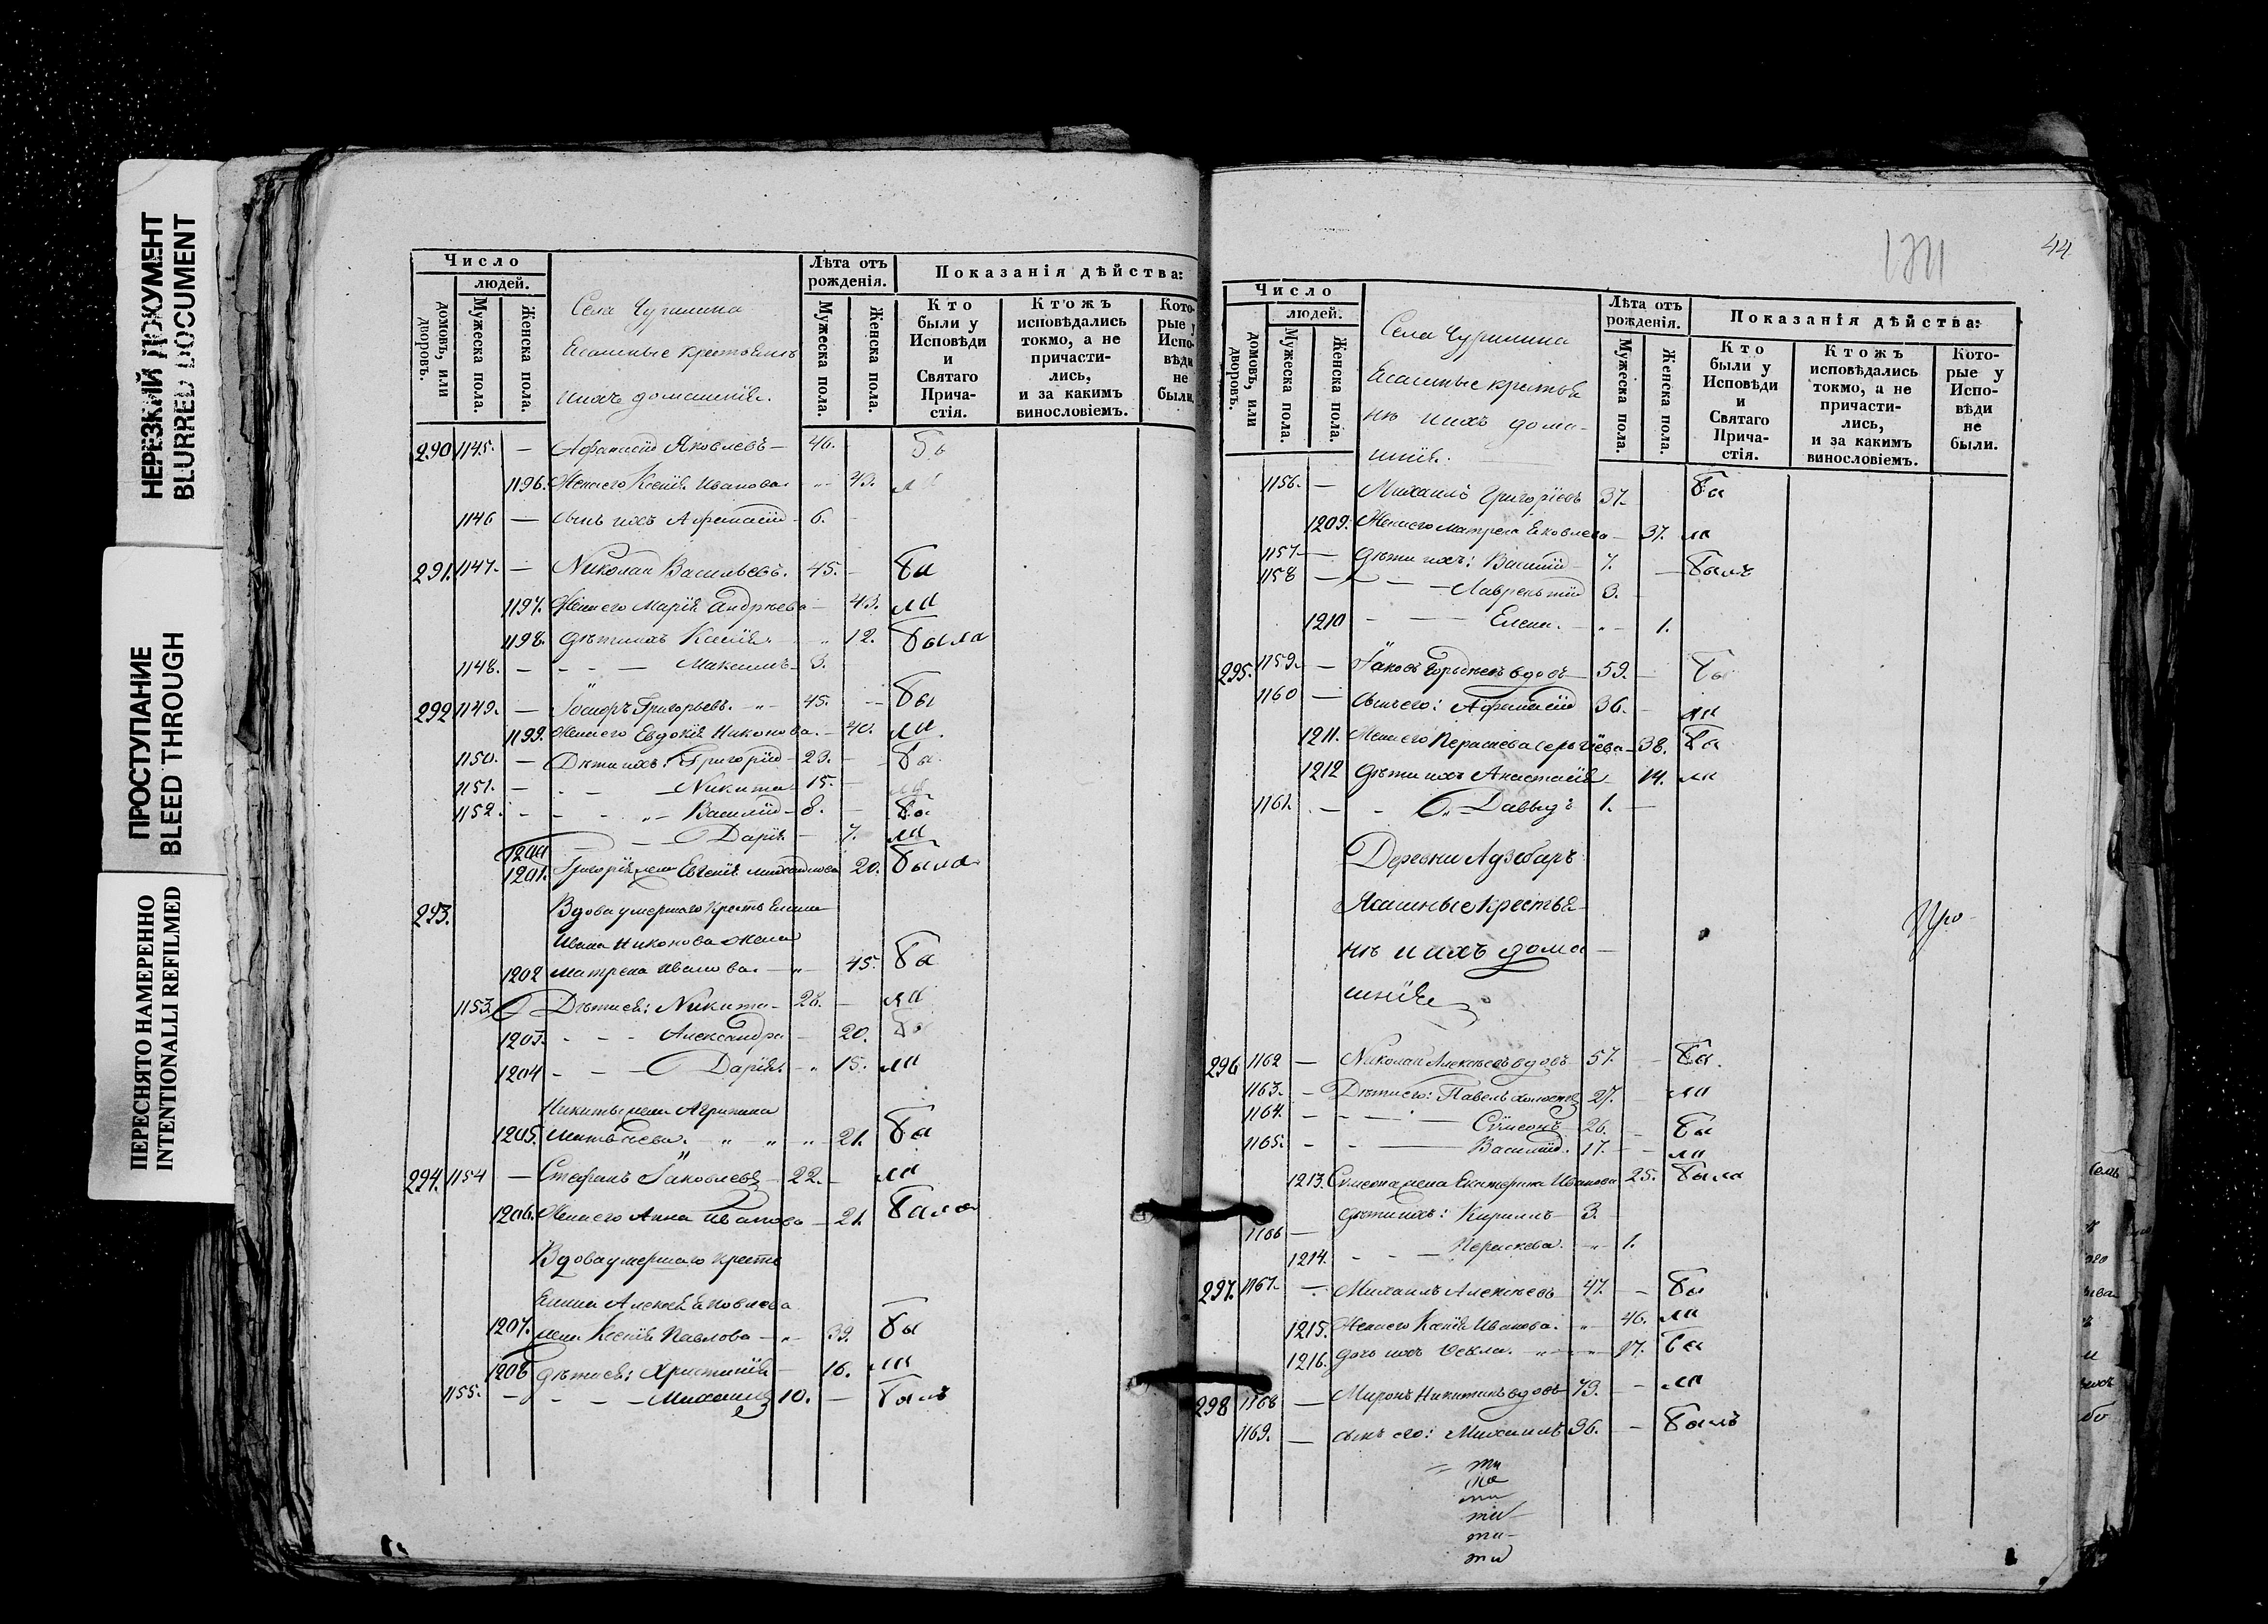 НЕРЕЗКИЙ ДОКУМЕНТ
BLURRED DOCUMENT
ПРОСТУПАНИЕ
BLEED THROUGH
ПЕРЕСНЯТО НАМЕРЕННО
INTENTIONALLI REFILMED
Число
людей.
домовъ, или дворовъ.
Мужеска пола.
Женска пола.
Села Чурилина
Ясашные крестьяне
и ихъ домашнія.
Лѣта отъ рожденія.
Мужеска пола.
Женска пола.
Показанія дѣйства:
Кто были у Исповѣди и Святаго Прича-стія.
Ктожъ исповѣдались токмо, а не причасти-лись, и за какимъ винословіемъ.
Кото-рые у Испо-вѣди не были.
290 1145. — Афанасій Яковлевъ — 46. Бы
1196. Жена его Ксенія Иванова. 43. ли
1146 — сынъ ихъ Афанасій 6.
291. 1147. — Николай Васильевъ. 45. — Бы
1197. Жена его Марія Андреева — 43. ли
1198. дѣти ихъ Ксенія 12. Была
1148. — — Максимъ 3.
292 1149. — Іосифъ Григорьевъ. 45. — Бы
1199. Жена его Евдокія Никонова. — 40. ли.
1150. — Дѣти ихъ: Григорій — 23. — Бы
1151. — — Никита 15. — ли
1152. — — Василій — 8. — Бы
1200 — Дарія — 7. ли
1201. Григорія жена Евгенія 20. Была
293. Вдова умершаго Крестьянина
Ивана Никонова жена
1202 Матрена Иванова. 45. Бы
1153. Дѣти ея: Никита — 28. — ли
1203. — — Александра — 20. Бы
1204 — — Дарія 15. ли
Никиты жена Агрипина
1205. Матвѣева. 21. Бы
294. 1154 — Стефанъ Іаковлевъ — 22. — ли
1206. Жена его Анна Иванова — 21. Была
Вдова умершаго Кресть
янина Алексѣя Яковлева
1207. жена Ксенія Павлова — 39. Бы
1208 дѣти ея: Христинія — 16. ли
1155. — — Михаилъ 10. — Былъ
44
Число
людей.
домовъ, или дворовъ.
Мужеска пола.
Женска пола.
Села Чурилина
Ясашные крестья
не и ихъ дома-
шнія.
Лѣта отъ рожденія.
Мужеска пола.
Женска пола.
Показанія дѣйства:
Кто были у Исповѣди и Святаго Прича-стія.
Ктожъ исповѣдались токмо, а не причасти-лись, и за какимъ винословіемъ.
Кото-рые у Испо-вѣди не были.
1156. — Михаилъ Григорьевъ 37. Бы
1209. Жена его Матрена Яковлева — 37. ли
1157 — дѣти ихъ: Василій 7. — Былъ
1158 — — Лаврентій 3.
1210 — — Елена. 1.
295. 1159. — Іаковъ вдовъ — 59. Бы
1160 — сынъ его: Афанасій 36. — ли
1211. Жена его Параскева Сергѣева — 38. Бы
1212 дѣти ихъ Анастасія — 14. ли
1161. — — Давыдъ 1. —
Деревни Адзебаръ
Ясашные крестья
не и ихъ дома
шнія
296 1162 — Николай Алексѣевъ вдовъ 57. Бы
1163. — Дѣти его: Павелъ холостъ 27. ли
1164. — — Сѵмеонъ 26. — Бы
1165. — — Василій. 17. — ли
1213. Сѵмеона жена Екатерина Иванова 25. Была
1166 — дѣти ихъ: Кириллъ — 3.
1214. — — Параскева. 1.
297. 1167. — Михаилъ Алексѣевъ 47. — Бы
1215. Жена его Ксенія Иванова. 46. ли
1216. дочь ихъ Ѳекла. 17. Бы
298 1168 — Миронъ Никитинъ вдовъ 73. — ли
1169. — сынъ его: Михаилъ 36. — Былъ